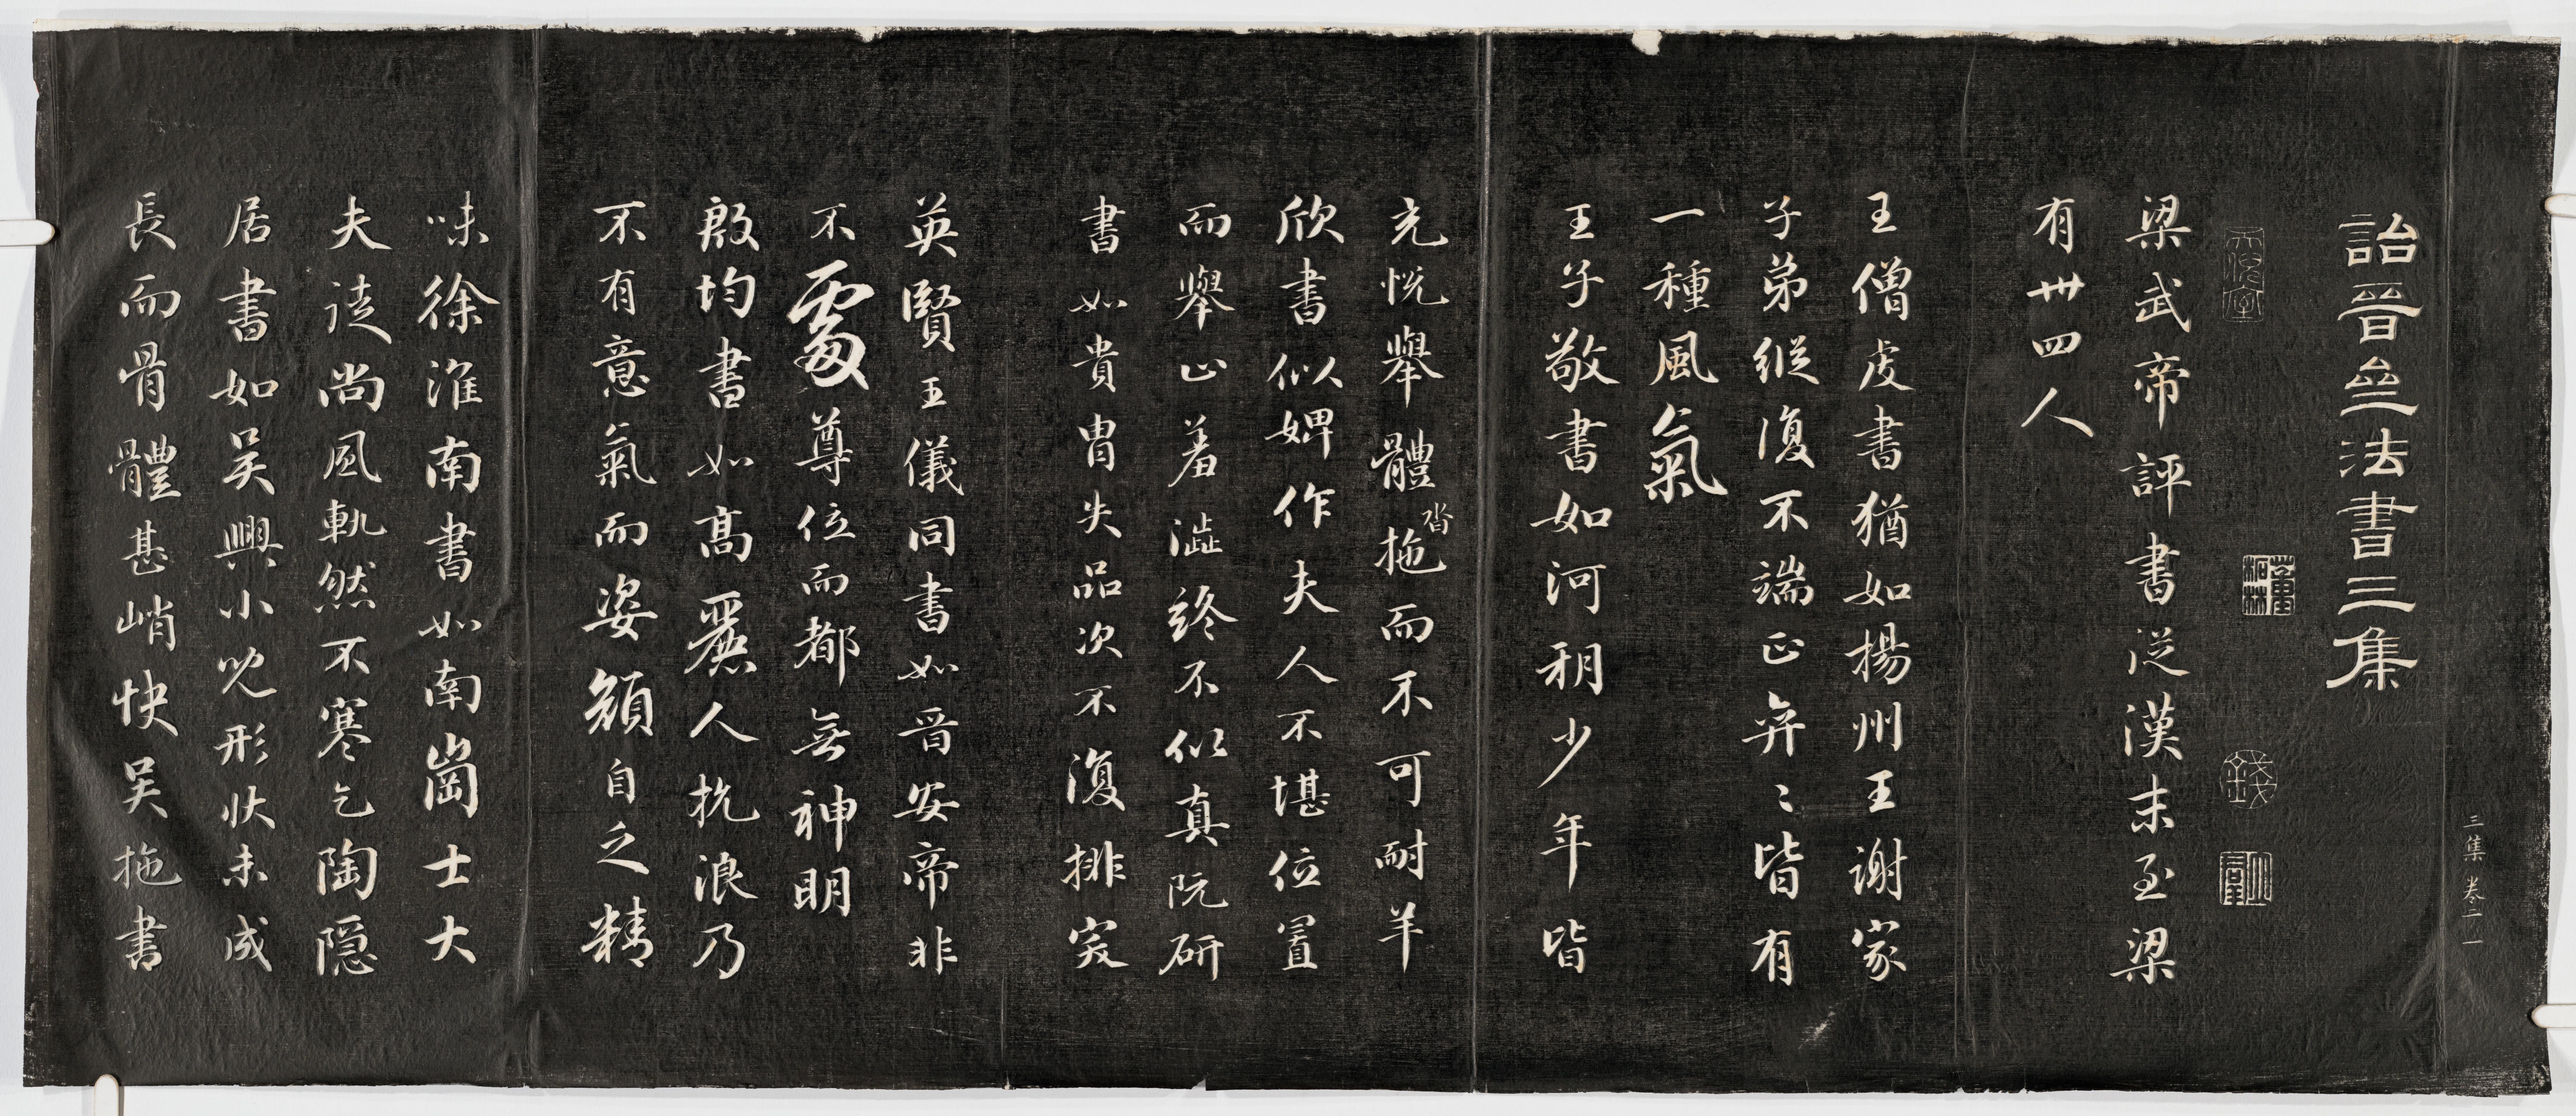 三集 卷二 一
詒晉㕘法書三集
梁武帝評書從漢末至梁
有卅四人
王僧虔書猶如揚州王謝家
子弟縱復不端正奕〻皆有
一種風氣
王子敬書如河朔少年皆
充悦舉體沓拖而不可耐羊
欣書似婢作夫人不堪位置
而舉止羞澁終不似真阮研
書如貴胄失品次不復排突
英賢王儀同書如晉安帝非
不處尊位而都無神明
殷均書如高麗人抗浪乃
不有意氣而姿顔自乏精
味徐淮南書如南崗士大
夫徒尚風軌然不寒乞陶隠
居書如吴興小兒形狀未成
長而骨體甚峭快吴拖書